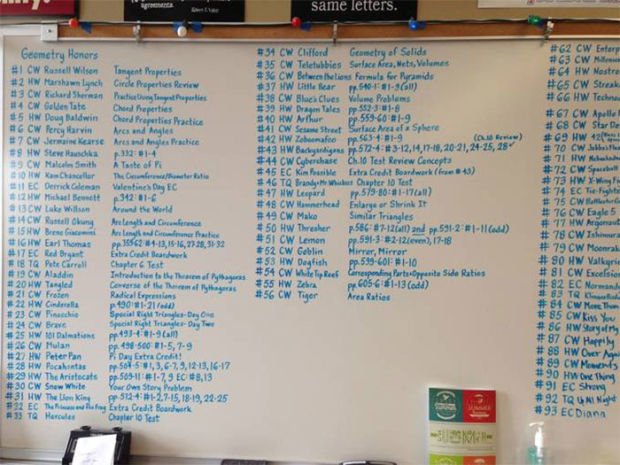 agreements.
same letters.
Geometry Honors
#1 CW Russell Wilson Tangent Properties
#2 HW Marshawn Lynch Circle Properties Review
#3 CW Richard Sherman Practice Using Tangent Properties
#4 CW Golden Tate Chord Properties
#5 HW Doug Baldwin Chord Properties Practice
#6 CW Percy Harvin Arcs and Angles
#7 CW Jermaine Kearse Arcs and Angles Practice
#8 HW Steve Hauschka p.332: #1-4
#9 CW Malcolm Smith A Taste of Pi
#10 HW Kam Chancellor The Circumference/Diameter Ratio
#11 EC Derrick Coleman Valentine's Day EC
#12 HW Michael Bennett p.342: #1-6
#13 CW Luke Wilson Around the World
#14 CW Russell Okung Arc Length and Circumference
#15 HW Breno Giacomini Arc Length and Circumference Practice
#16 HW Earl Thomas #4-13, 15-16, 27-28, 31-32
#17 EC Red Bryant Extra Credit Boardwork
#18 TQ Pete Carroll Chapter 6 Test
#19 CW Aladdin Introduction to the Theorem of Pythagoras
#20 HW Tangled Converse of the Theorem of Pythagoras
#21 CW Frozen Radical Expressions
#22 HW Cinderella p.490 #1-21 (odd)
#23 CW Pinocchio Special Right Triangles-Day One
#24 CW Brave Special Right Triangles-Day Two
#25 HW 101 Dalmations pp.493-4: #1-9 (all)
#26 CW Mulan pp. 498-500: #1-5, 7-9
#27 HW Peter Pan Pi Day Extra Credit!
#28 HW Pocahontas pp.504-5: #1, 3, 6-7, 9, 12-13, 16-17
#29 HW The Aristocats pp.509-11: #1-7, 9 EC: #8, 13
#30 CW Snow White Your Own Story Problem
#31 HW The Lion King pp. 512-4: #1-2, 7-15, 18-19, 22-25
#32 EC The Princess and the Frog Extra Credit Boardwork
#33 TQ Hercules Chapter 10 Test
#34 CW Clifford Geometry of Solids
#35 CW Teletubbies Surface Area, Nets, Volumes
#36 CW Between the Lions Formula for Pyramids
#37 HW Little Bear pp.540-1: #1-9 (all)
#38 CW Blues Clues Volume Problems
#39 HW Dragon Tales pp.552-3: #1-8
#40 HW Arthur pp.559-60: #1-9
#41 CW Sesame Street Surface Area of a Sphere
#42 HW Zoboomafoo pp.563-4: #1-9 (Ch.10 Review)
#43 HW Backyardigans pp.572-4: #3-12, 14, 17-18, 20-21, 24-25, 28
#44 CW Cyberchase Ch.10 Test Review Concepts
#45 EC Kim Possible Extra Credit Boardwork (from #43)
#46 TQ Brandy+Mr Whiskers Chapter 10 Test
#47 HW Leopard pp.579-80: #1-17 (all)
#48 CW Hammerhead Enlarge or Shrink It
#49 CW Mako Similar Triangles
#50 HW Thresher pp.586: #7-12 (all) and pp.591-2: #1-11 (odd)
#51 CW Lemon pp.591-3: #2-12 (even), 17-18
#52 CW Goblin Mirror, Mirror
#53 HW Dogfish pp.599-601: #1-10
#54 CW White Tip Reef Corresponding Parts+Opposite Side Ratios
#55 HW Zebra pp.605-6: #1-13 (odd)
#56 CW Tiger Area Ratios
#62 CW Enterp
#63 CW Millenniu
#64 HW Nostro
#65 CW Streak
#66 HW Techno
#67 CW Apollo
#68 CW Star Des
#69 HW
70 CW
71 HW
#72 CW Spaceball
#73 HW X-Wing
#74 EC Tie-Fighter
#75 CW
#76 CW Eagle 5
#77 HW Argonaut
#78 CW Ishimura
#79 CW Moonrak
#80 HW Valkyri
#81 CW Excelsior
#82 EC Normand
#83 TQ
#84 CW More Than
#85 CW Kiss You
#86 HW Story of My
#87 CW Happily
#88 HW Over Again
#89 CW Moments
#90 HW One Thing
#91 EC Strong
#92 TQ Up All Night
#93 EC Diana
SUMMER